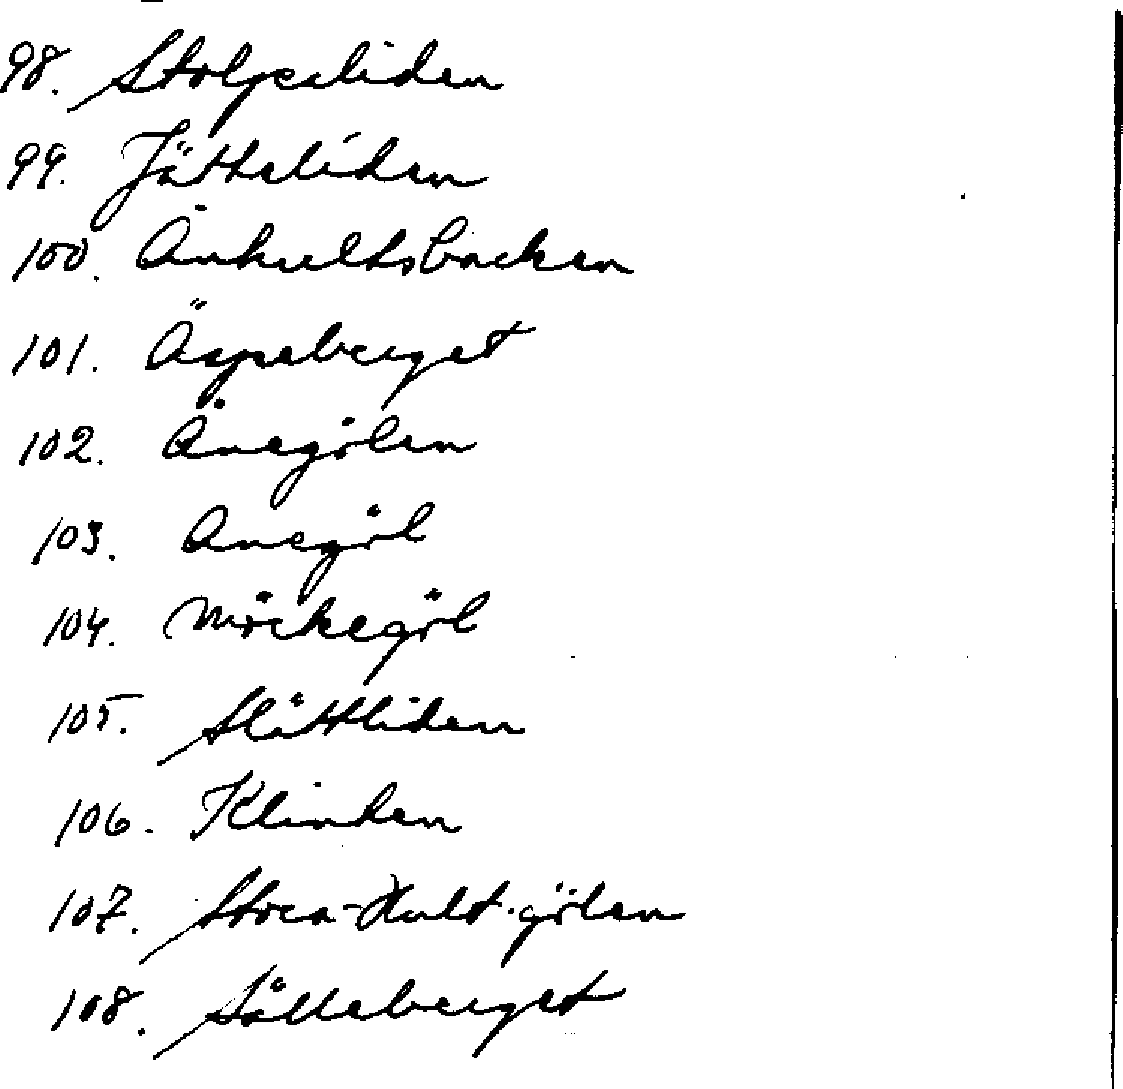 98. Stolpaliden
99. Jätteliden
100. Änhultsbacken
101. Äspeberget
102. Änegölen
103. Anegöl
104. Mörkegöl
105. Slättliden
106. Klinten
107. Stora-Hult-gölen
108. Sålleberget